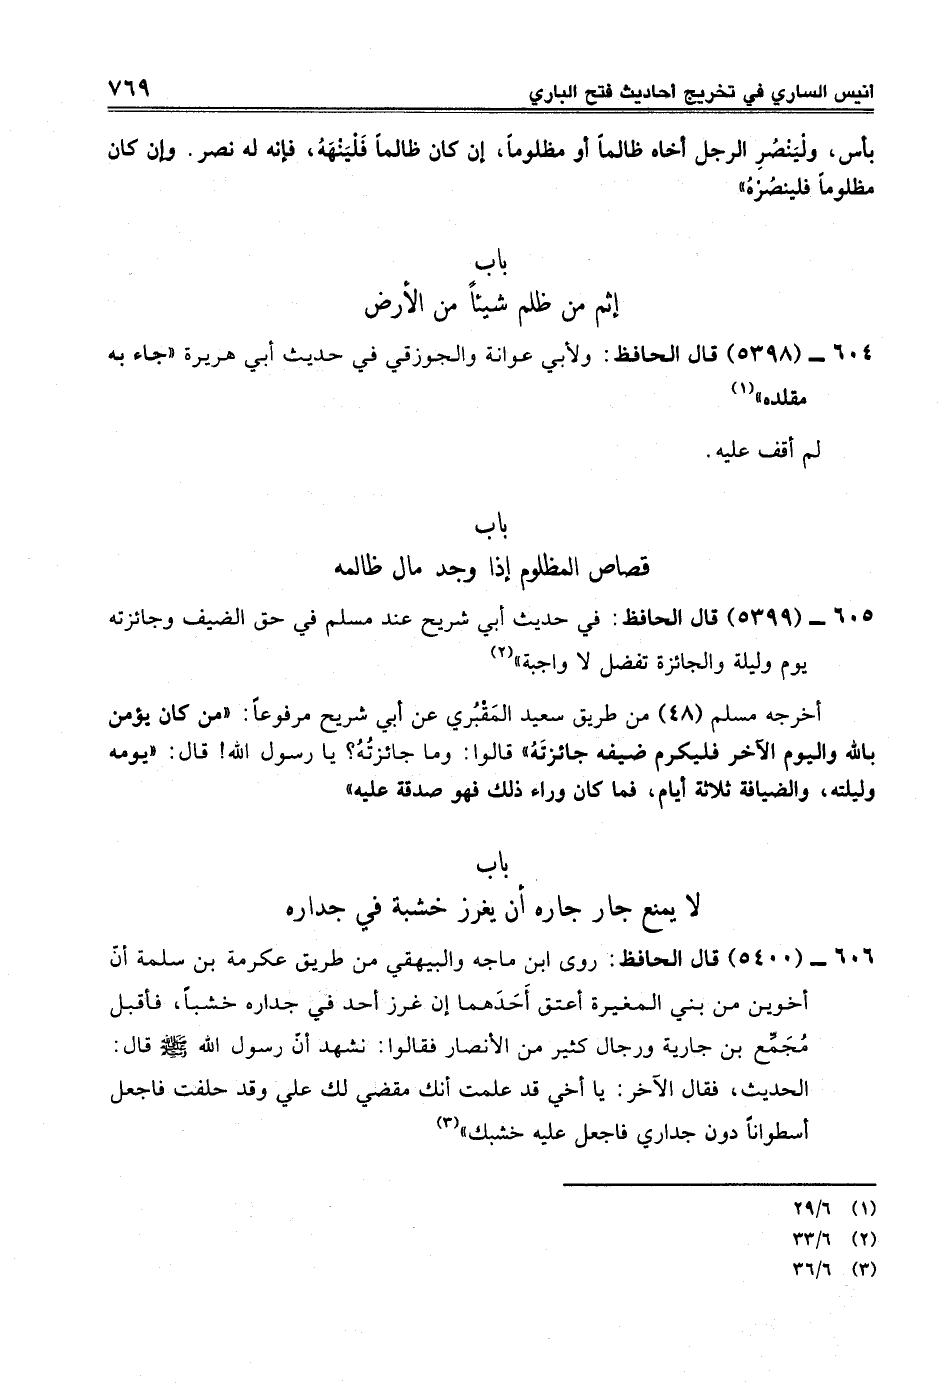 انيس الساري في تخريج أحاديث فتح الباري ٧٦٩
بأس، ولْيَنْصُرِ الرجل أخاه ظالماً أو مظلوماً، إن كان ظالماً فَلْيَنْهَهُ، فإنه له نصر. وإن كان
مظلوماً فلينصُرْهُ»
باب
إثم من ظلم شيئاً من الأرض
٦٠٤ ـ (٥٣٩٨) قال الحافظ: ولأبي عوانة والجوزقي في حديث أبي هريرة «جاء به
مقلده»(١)
لم أقف عليه.
باب
قصاص المظلوم إذا وجد مال ظالمه
٦٠٥ ـ (٥٣٩٩) قال الحافظ: في حديث أبي شريح عند مسلم في حق الضيف وجائزته
يوم وليلة والجائزة تفضل لا واجبة»(٢)
أخرجه مسلم (٤٨) من طريق سعيد المَقْبُري عن أبي شريح مرفوعاً: «من كان يؤمن
بالله واليوم الآخر فليكرم ضيفه جائزتَهُ» قالوا: وما جائزتُهُ؟ يا رسول الله! قال: «يومه
وليلته، والضيافة ثلاثة أيام، فما كان وراء ذلك فهو صدقة عليه»
باب
لا يمنع جار جاره أن يغرز خشبة في جداره
٦٠٦ ـ (٥٤٠٠) قال الحافظ: روى ابن ماجه والبيهقي من طريق عكرمة بن سلمة أنّ
أخوين من بني المغيرة أعتق أَحَدَهما إن غرز أحد في جداره خشباً، فأقبل
مُجَمِّع بن جارية ورجال كثير من الأنصار فقالوا: نشهد أنّ رسول الله ﷺ قال:
الحديث، فقال الآخر: يا أخي قد علمت أنك مقضي لك علي وقد حلفت فاجعل
أسطواناً دون جداري فاجعل عليه خشبك»(٣)
(١) ٢٩/٦
(٢) ٣٣/٦
(٣) ٣٦/٦